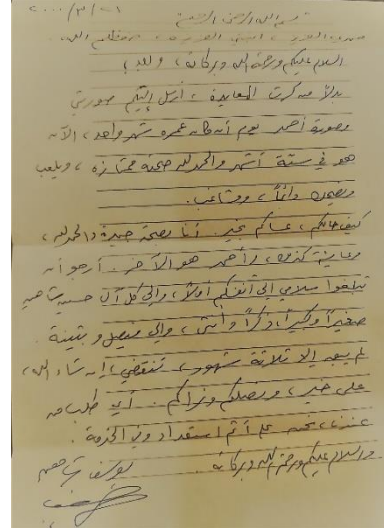 ٢٠٠٠/٣/٢١
بسم الله الرحمن الرحيم
العزيز، العزيزة، حفظكم الله
السلام عليكم ورحمة الله وبركاته، وبعد؛
بدلاً من كرت المعايدة، أرسل إليكم صورتي
وصورة أحمد يوم أن كان عمره شهر واحد، الآن
هو في ستة أشهر والحمد لله صحته ممتازة، ويلعب
ويضحك دائماً، ومشاغب.
كيف حالكم، عساكم بخير. أنا بصحة جيدة والحمد لله،
كذلك، وأحمد هو الآخر. أرجو أن
تبلغوا سلامي إلى أنفسكم أولاً، وإلى كل آل حسين شاهين
صغيراً وكبيراً، ذكراً وأنثى، وإلى فيصل وبثينة
لم يبق إلا ثلاثة شهور، تنقضي، إن شاء الله،
على خير، ونصلكم ونراكم. أي طلب من
عندنا، نحن على أتم استعداد وفي الخدمة.
والسلام عليكم ورحمة الله وبركاته.
يوسف شاهين